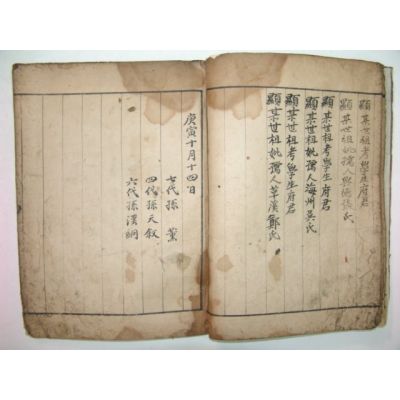 顯某世祖考學生府君
顯某世祖妣孺人興德張氏
顯某世祖考學生府君
顯某世祖妣孺人海州吳氏
顯某世祖考學生府君
顯某世祖妣孺人草溪鄭氏
庚寅十月十四日
七代孫 薰
四代孫天叙
六代孫漢綱